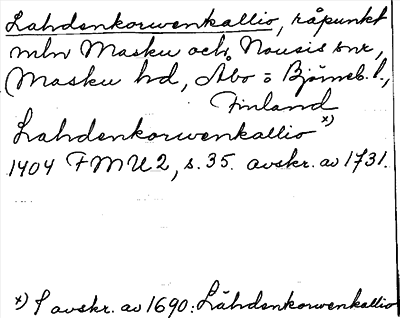 Lahdenkorwenkallio, råpunkt
mln Masku och Nousis snr,
(Masku hd, Åbo o Björneb. l.,
Finland
Lahdenkorwenkallio x)
1404 FMU 2, s. 35. avskr. av 1731.
x) I avskr. av 1690: Lähdenkorwenkallio